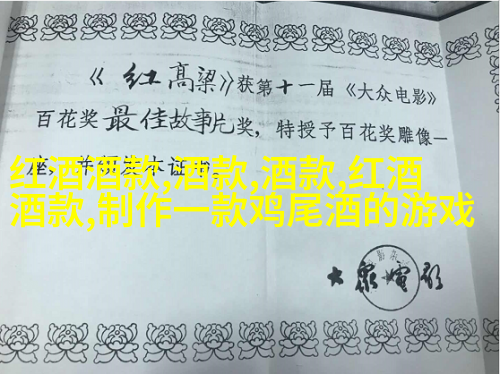 《红高粱》获第十一届《大众电影》
百花奖最佳故事片奖,特授予百花奖雕像一
座,并颁发本证书。
红酒酒款,酒款,酒款,红酒
酒款,制作一款鸡尾酒的游戏
大众电影